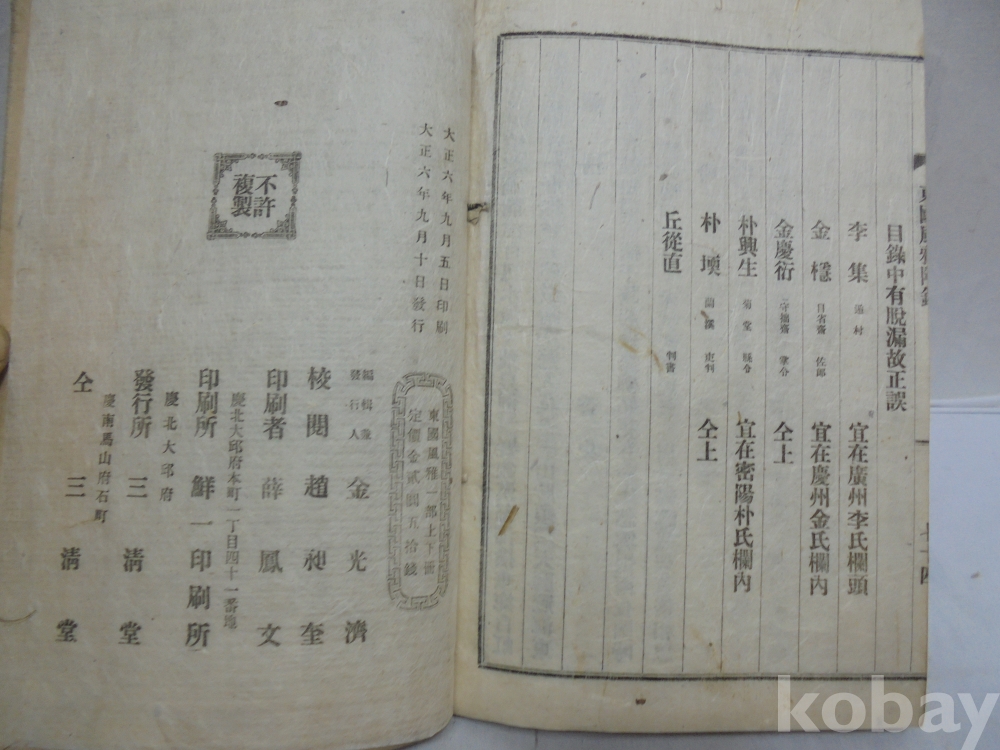 目錄中有脫漏故正誤
李集 遁村 宜在廣州李氏欄頭
金檼 日省齋 佐郎 宜在慶州金氏欄內
金慶衍 守福齋 掌令 仝上
朴興生 菊堂 縣令 宜在密陽朴氏欄內
朴堧 蘭溪 吏判 仝上
丘從直 判書
大正六年九月五日印刷
大正六年九月十日發行
不許
複製
東國風雅一部上下冊
定價金貳圓五拾錢
編輯兼
發行人 金光濟
校閱 趙昶奎
印刷者 薛鳳文
慶北大邱府本町一丁目四十一番地
印刷所 鮮一印刷所
慶北大邱府
發行所 三淸堂
慶南馬山府石町
仝 三淸堂
kobay